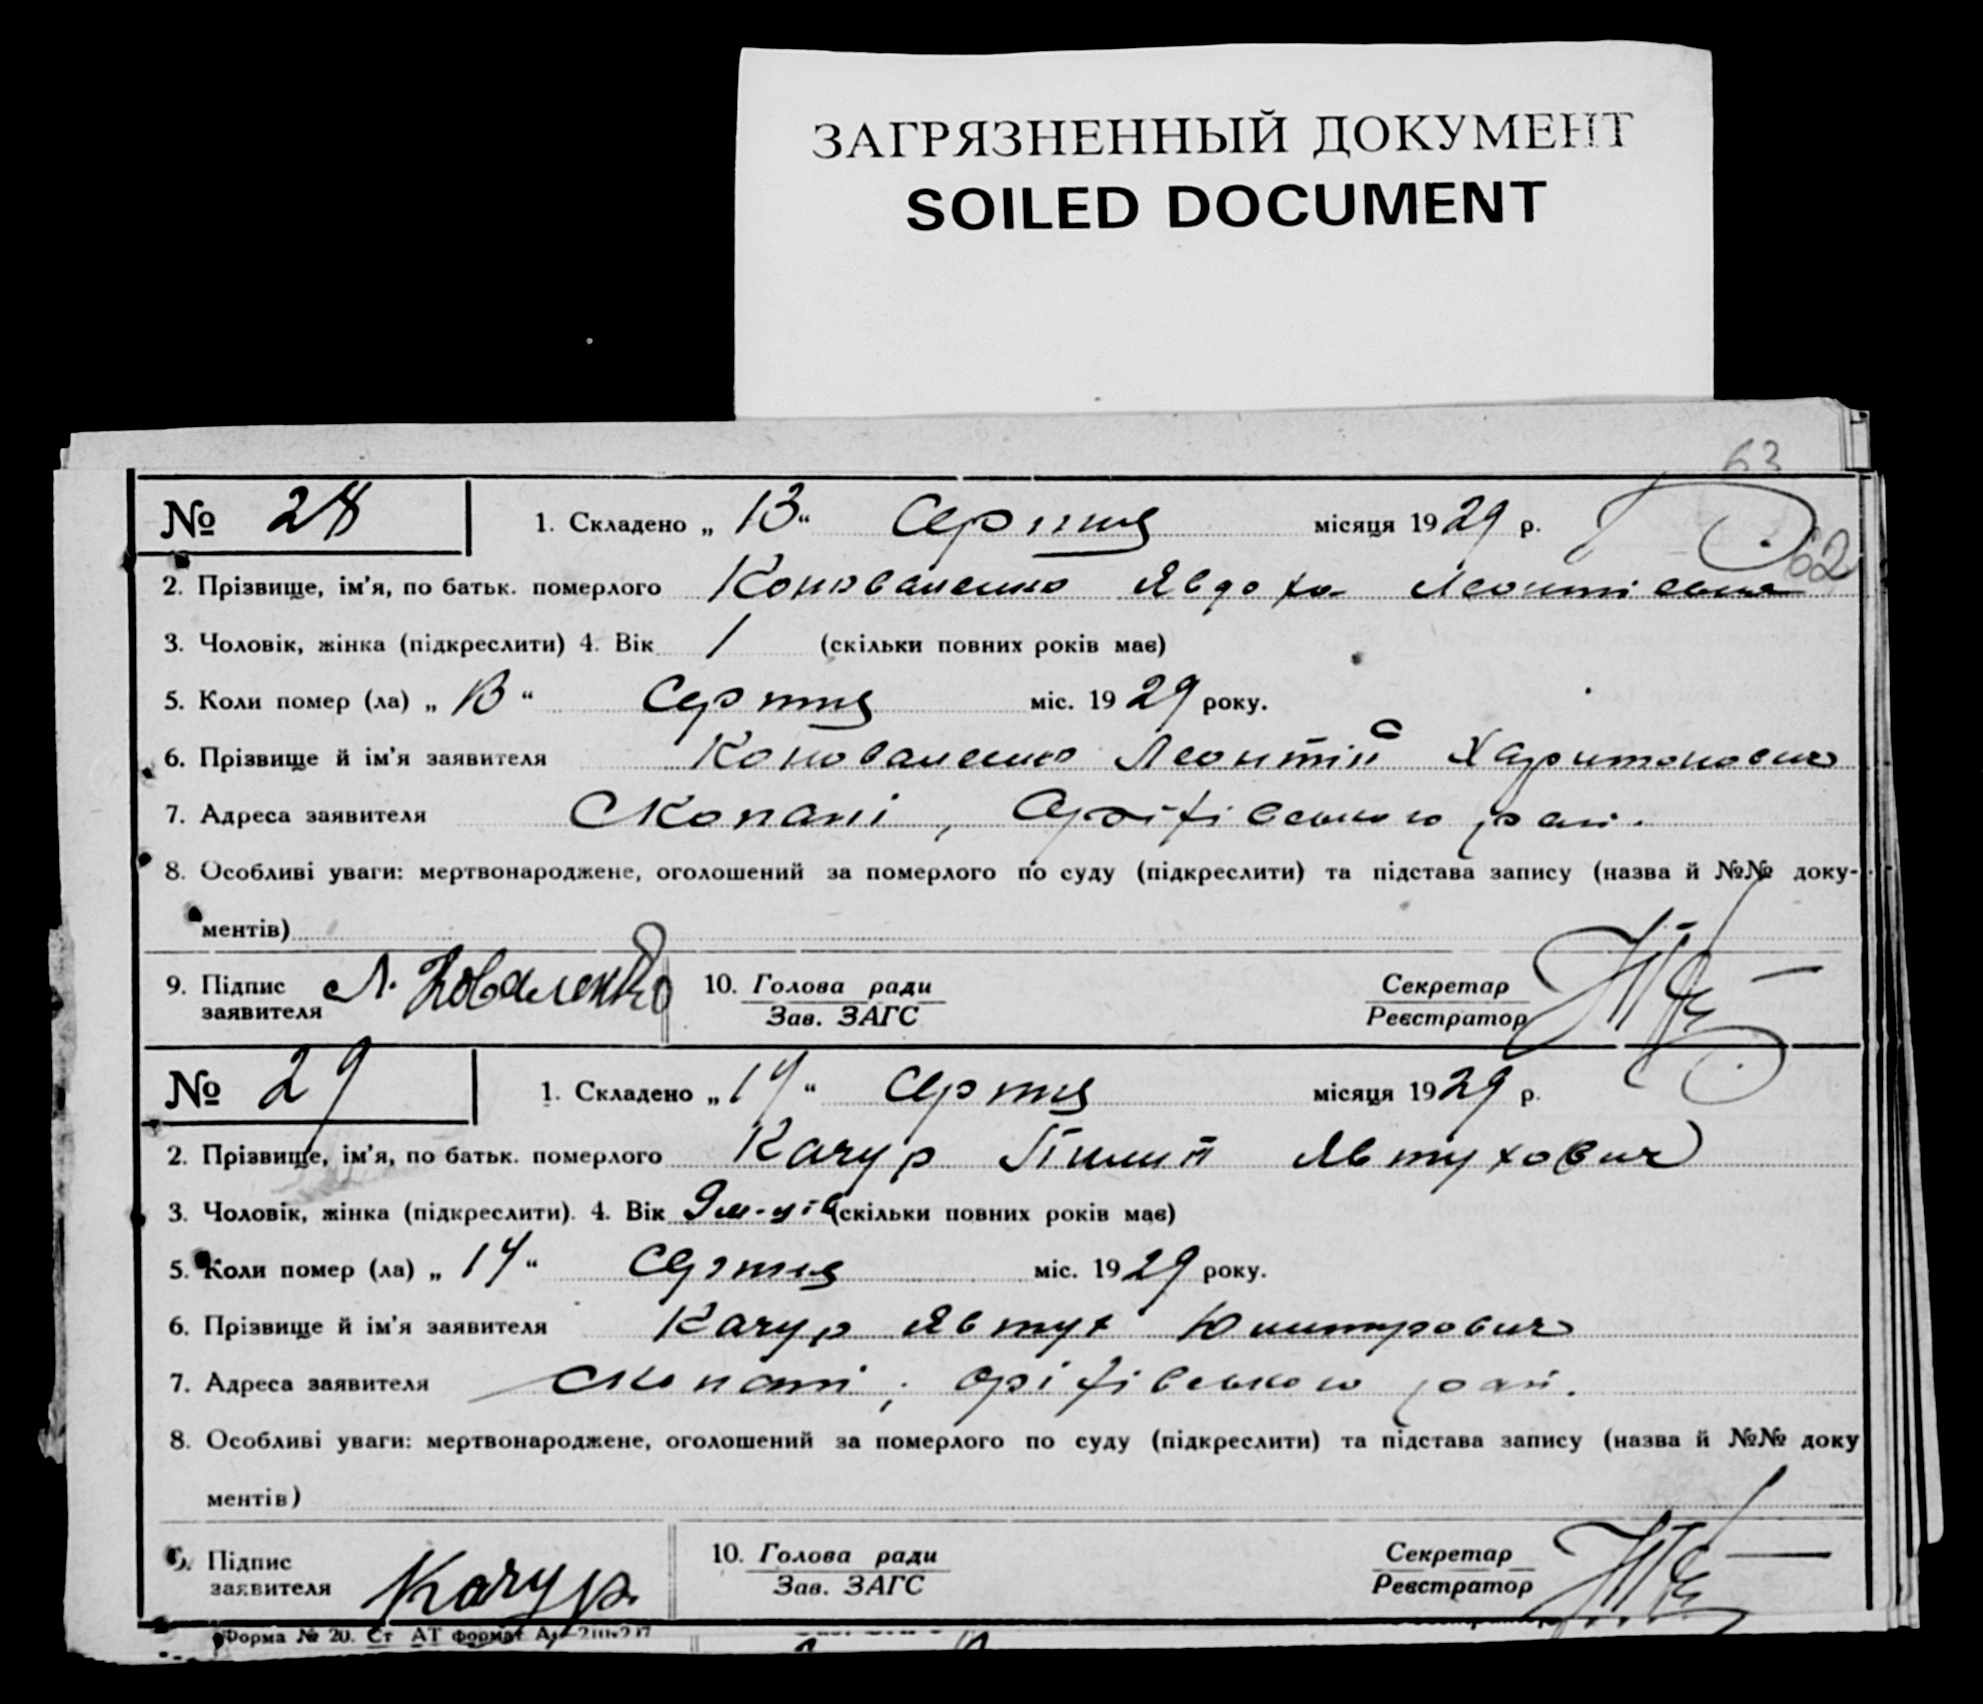 ЗАГРЯЗНЕННЫЙ ДОКУМЕНТ
SOILED DOCUMENT
63
№ 28 1. Складено „ 13 “ Серпня місяця 1929 р.
62
2. Прізвище, ім'я, по батьк. померлого Коноваленко Явдоха Леонтієвна
3. Чоловік, жінка (підкреслити) 4. Вік 1 (скільки повних років має)
5. Коли помер (ла) „ 13 “ Серпня міс. 1929 року.
6. Прізвище й ім'я заявителя Коноваленко Леонтій Харитонович
7. Адреса заявителя Скопані, Оріхівського рай.
8. Особливі уваги: мертвонароджене, оголошений за померлого по суду (підкреслити) та підстава запису (назва й №№ доку-
ментів)
9. Підпис заявителя Л. Коваленко 10. Голова ради Секретар
Зав. ЗАГС Реєстратор
№ 29 1. Складено „ 14 “ Серпня місяця 1929 р.
2. Прізвище, ім'я, по батьк. померлого Качур Пилип Явтухович
3. Чоловік, жінка (підкреслити). 4. Вік 9 м-ців (скільки повних років має)
5. Коли помер (ла) „ 14 “ Серпня міс. 1929 року.
6. Прізвище й ім'я заявителя Качур Явтух
7. Адреса заявителя Скопані, Оріхівського рай.
8. Особливі уваги: мертвонароджене, оголошений за померлого по суду (підкреслити) та підстава запису (назва й №№ доку
ментів)
9. Підпис заявителя Качур 10. Голова ради Секретар
Зав. ЗАГС Реєстратор
Форма № 20. Ст АТ формат